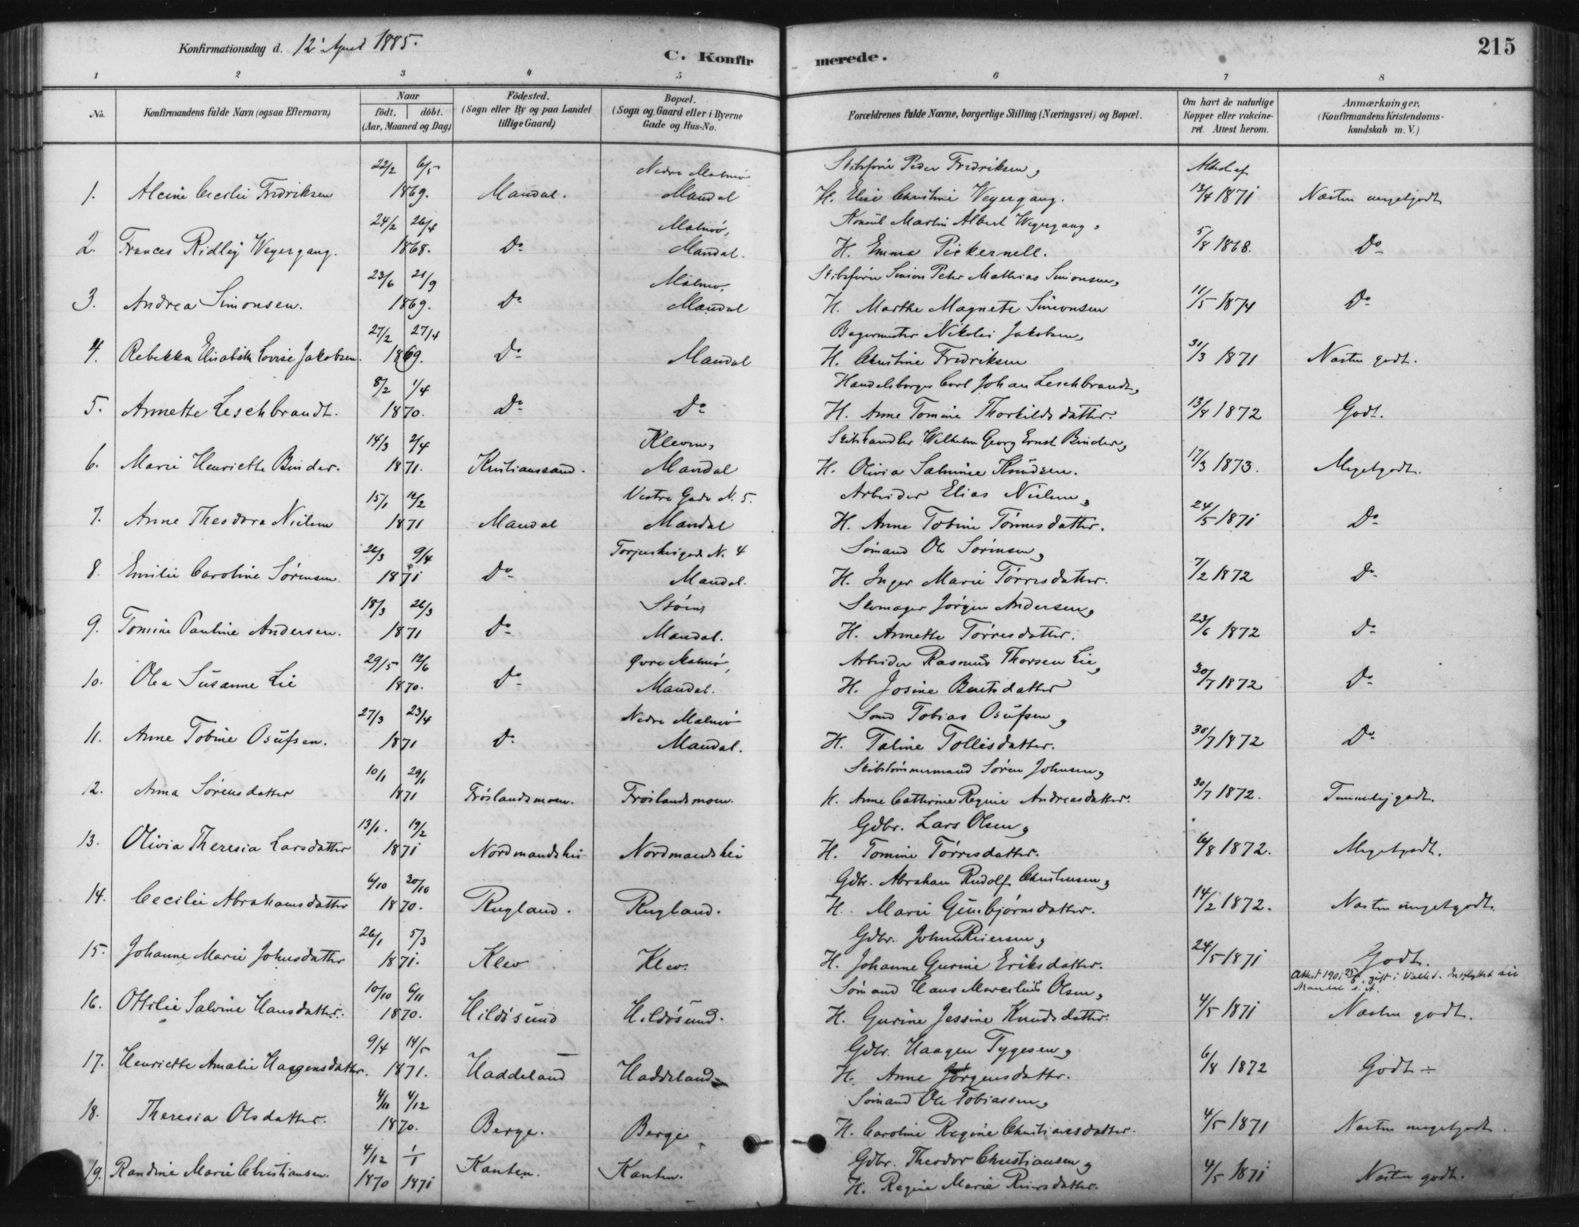 Konfirmationsdag d. 12' April 1885.
C. Konfirmerede.
215
1 2 3 4 5 6 7 8
No. Konfirmandens fulde Navn (ogsaa Efternavn) Naar født. døbt. (Aar, Maaned og Dag) Fødested. (Sogn eller By og paa Landet tillige Gaard) Bopæl. (Sogn og Gaard eller i Byerne Gade og Hus-No. Forældrenes fulde Navne, borgerlige Stilling (Næringsvei) og Bopæl. Om havt de naturlige Kopper eller vakcineret. Attest herom. Anmærkninger. (Konfirmandens Kristendomskundskab m. V.)
22/2 6/5 Nedre Malmø Skibsfører Peder Fredriksen,
1. Alvine Cecilie Fredriksen 1869. Mandal. Mandal H. Elise Christine Weyergang. 13/4 1871 Næsten megetgodt
24/2 26/4 Malmø, Konsul Martin Albert Weyergang,
2. Frances Ridley Weyergang. 1868. Do Mandal. H. Emma Pickernell. 5/8 1868. Do
23/6 21/9 Malmø, Skibsfører Simon Peter Mathias Simonsen,
3. Andrea Simonsen. 1869. Do Mandal H. Marthe Magnete Simonsen 11/5 1874 Do
27/2 27/4 Bagermester Nikolai Jakobsen,
4. Rebekka Elisabeth Lovise Jakobsen. 1869. Do Mandal H. Christine Fredriksen 31/3 1871 Næsten godt.
8/2 1/4 Handelsborger Carl Johan Leschbrandt,
5. Annette Leschbrandt. 1870. Do Do H. Anne Tomine Thorkildsdatter. 13/8 1872 Godt.
14/3 2/4 Kleven, Wilhelm Georg Ernst Binder,
6. Marie Henriette Binder. 1871. Kristianssand. Mandal H. Olivia Salmine Knudsen. 17/3 1873. Megetgodt.
15/1 12/2 Vestre Gade N. 5. Arbeider Elias Nielsen,
7. Anne Theodora Nielsen 1871 Mandal Mandal H. Anne Tobine Tønnesdatter. 24/5 1871 Do
22/3 9/4 N. 4 Sømand Ole Sørensen,
8. Emilie Caroline Sørensen 1871 Do Mandal. H. Inger Marie Tørresdatter. 7/2 1872 Do
18/3 26/3 Skomager Jørgen Andersen,
9. Tomine Pauline Andersen. 1871 Do Mandal. H. Annette Tørresdatter. 23/6 1872 Do
29/5 12/6 Øvre Malmø, Arbeider Rasmus Thorsen Lie,
10. Olea Susanne Lie 1870. Do Mandal. H. Josine Berntsdatter 30/7 1872 Do
27/3 23/4 Nedre Malmø Tobias Osufsen,
11. Anne Tobine Osufsen. 1871 Do Mandal. H. Taline Tollisdatter. 30/7 1872 Do
10/1 29/1 Skibstømmermand Søren Johnsen,
12. Anna Sørensdatter 1871 Frøislandsmoen. Frøislandsmoen H. Anne Cathrine Regine Andreasdatter. 30/7 1872. Temmelig godt.
13/1. 19/2 Gdbr. Lars Olsen,
13. Olivia Theresia Larsdatter 1871 Nordmandshei Nordmandshei H. Tomine Tørresdatter. 6/8 1872. Megetgodt.
6/10 30/10 Gdbr. Abraham Rudolf Christensen,
14. Cecilie Abrahamsdatter 1870. Rugland. Rugland. H. Marie Gunbjørnsdatter. 14/2 1872. Næsten megetgodt.
26/1 5/3 Gdbr. John Reiersen,
15. Johanne Marie Johnsdatter 1871. Klev Klev. H. Johanne Gurine Eriksdatter. 24/5 1871 Godt.
10/10 6/11 Sømand Hans Marcelius Olsen,
16. Ottilie Salvine Hansdatter. 1870. Hildøsund Hildøsund. H. Gurine Jessine Knudsdatter. 4/5 1871 Næsten godt.
9/4 14/5 Gdbr. Haagen Tygesen,
17. Henriette Amalie Haagensdatter. 1871. Haddeland Haddeland H. Anne Jørgensdatter. 6/8 1872 Godt
4/11 4/12 Sømand Ole Tobiassen,
18. Theresia Olsdatter. 1870. Berge. Berge. H. Caroline Regine Christiansdatter. 4/5 1871 Næsten megetgodt.
4/12 1/1 Gdbr. Theodor Christiansen,
19. Randine Marie Christiansen. 1870 1871 Kanten. Kanten. H. Regine Marie Reiersdatter. 4/5 1871 Næsten godt.